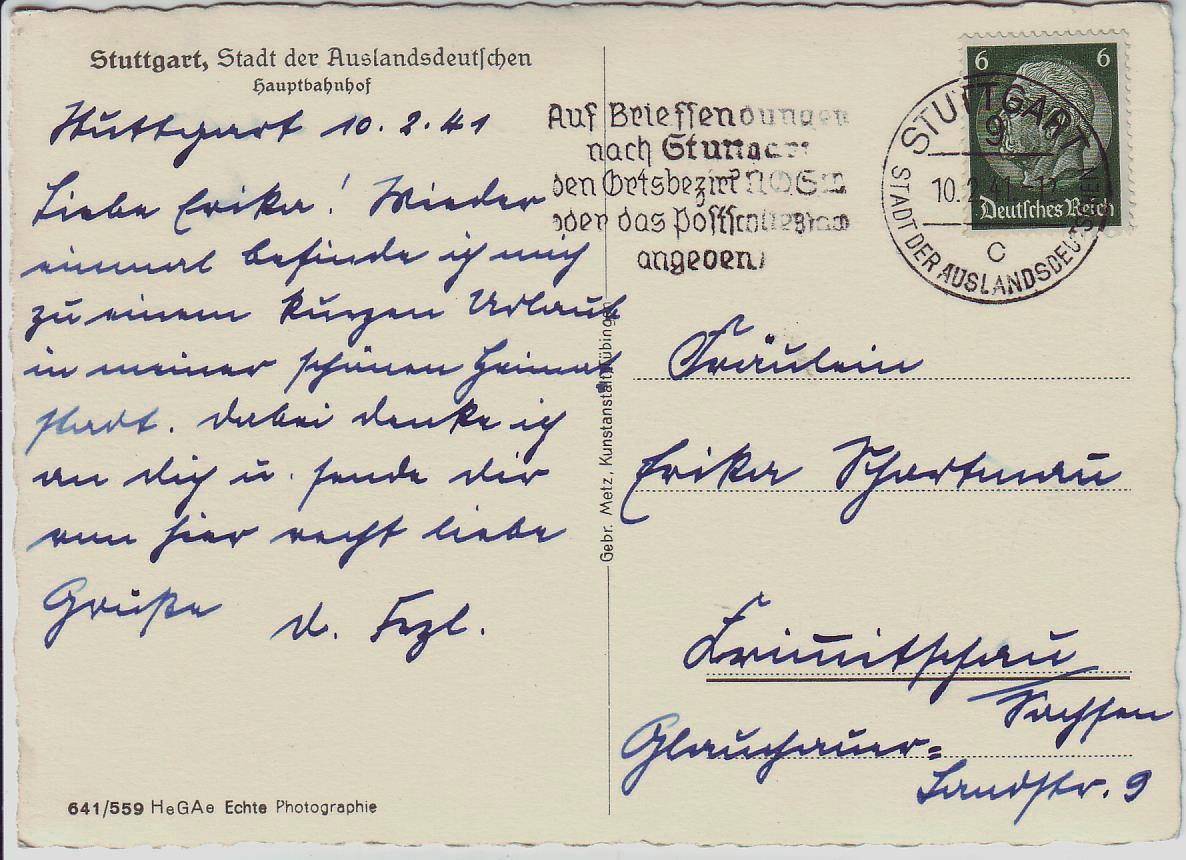 Stuttgart, Stadt der Auslandsdeutschen
Hauptbahnhof
Stuttgart 10.2.41
Liebe Erika! Wieder
einmal befinde ich mich
zu einem kurzen Urlaub
in meiner schönen Heimat
stadt. Dabei denke ich
an Dich u. sende Dir
von hier recht liebe
Grüße
d.
641/559 HeGAe Echte Photographie
Gebr. Metz, Kunstanstalt, Tübingen
Auf Briefsendungen
nach Stuttgart
den Ortsbezirk N.O.S.W.
oder das Postschließfach
angeben!
6 6
Deutsches Reich
STUTTGART
9
10.2.41
C
STADT DER AUSLANDSDEUTSCHEN
Fräulein
Erika Schartmau
Krimitschau
Sachsen
Glauchauer=
Landstr. 9